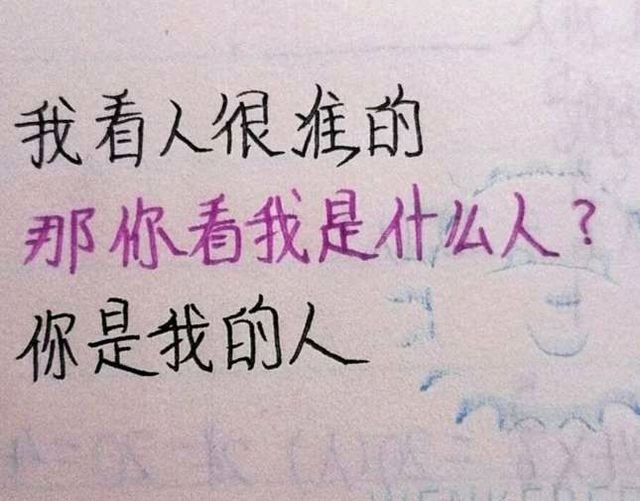 我看人很准的
那你看我是什么人？
你是我的人